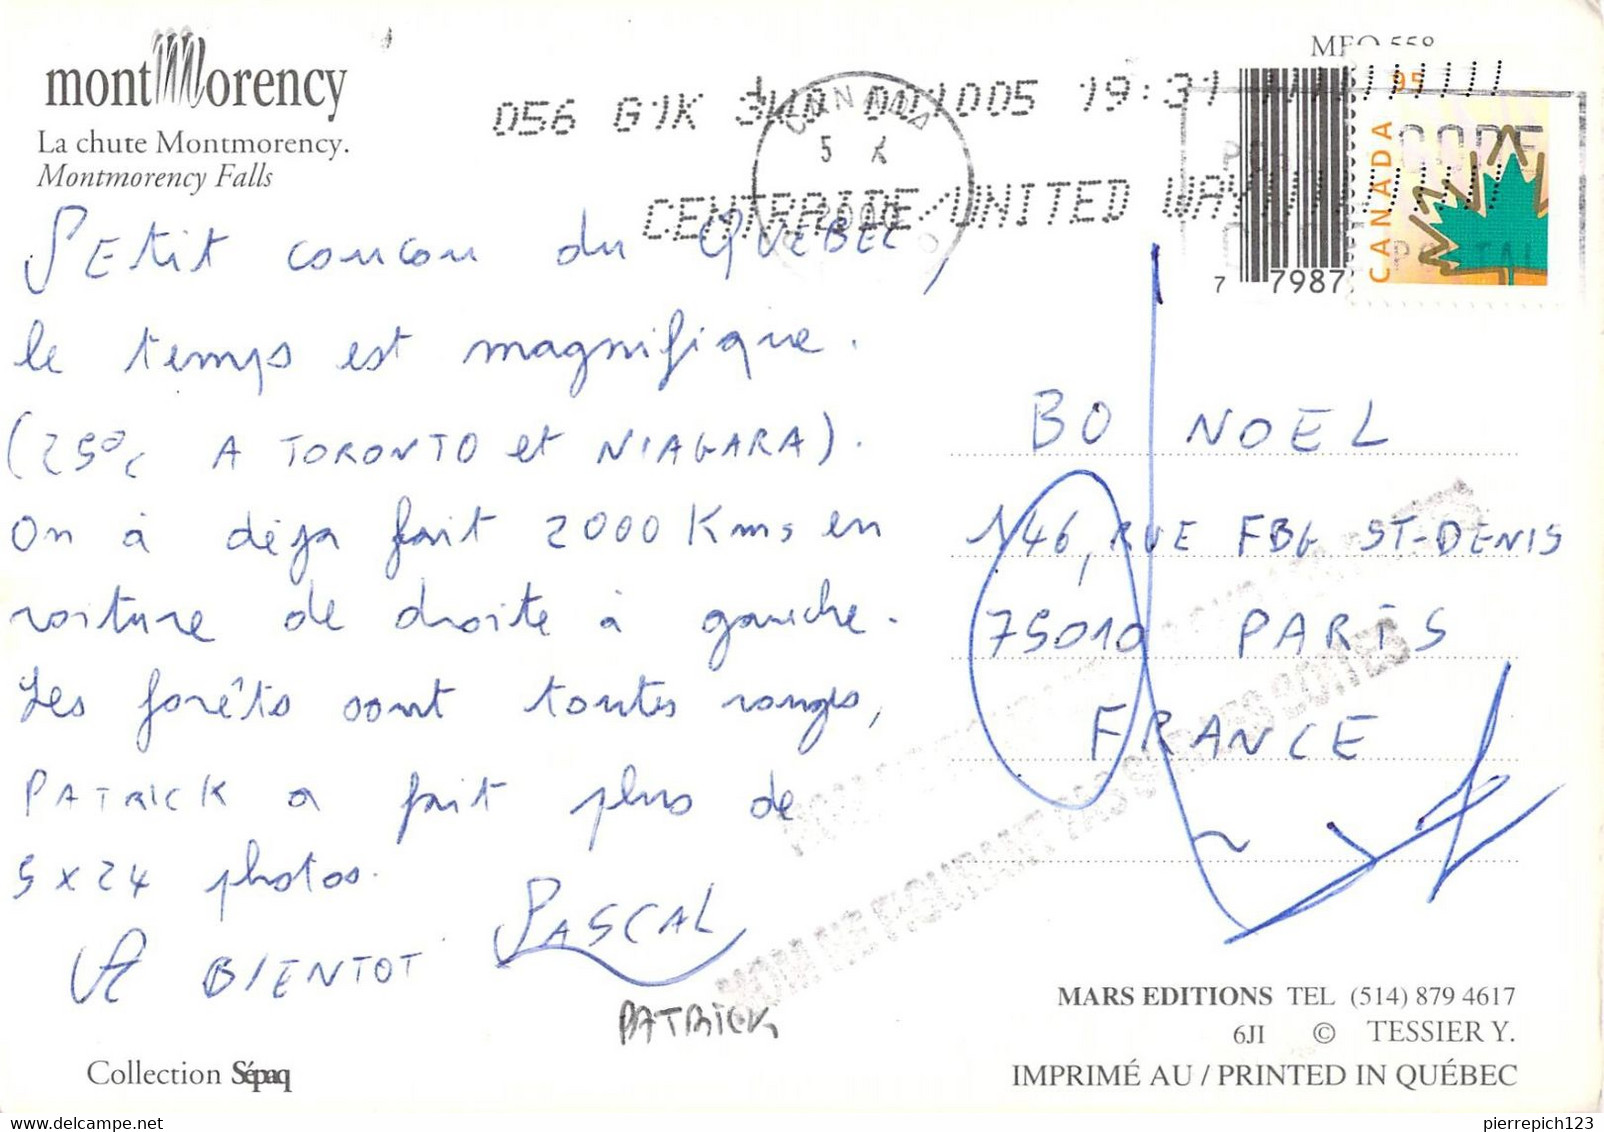 montMorency
La chute Montmorency.
Montmorency Falls
056 G1K 3W0 001005 19:31
CANADA
5 X
2000
CENTRAIDE/UNITED WAY
CODE
POSTAL
95
CANADA
7 7987
Petit coucou du QUEBEC,
le temps est magnifique.
(25°C A TORONTO et NIAGARA).
On a déja fait 2000 Kms en
voiture de droite à gauche.
Les forêts sont toutes rouges,
PATRICK a fait plus de
5 x 24 photos.
A BIENTOT PASCAL
PATRICK
BO NOEL
146, RUE FBG ST-DENIS
75010 PARIS
FRANCE
NOM NE FIGURANT PAS SUR LES BOITES
MARS EDITIONS TEL (514) 879 4617
6JI © TESSIER Y.
Collection Sépaq
IMPRIMÉ AU / PRINTED IN QUÉBEC
pierrepich123